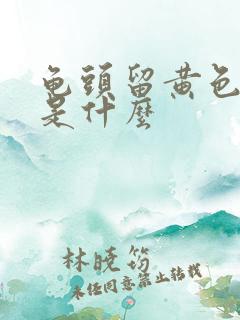 龟頭留黄色
是什麼
林晓筠
未经同意禁止转载